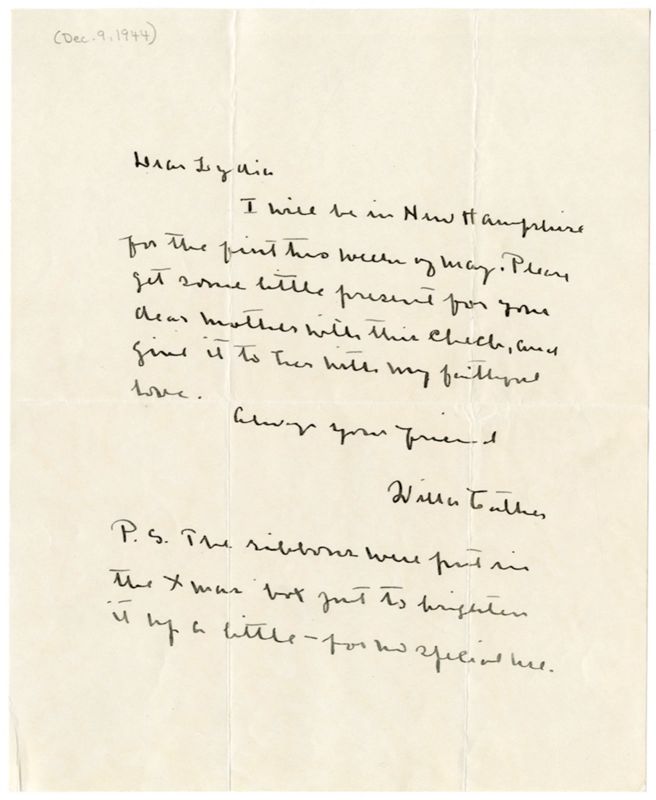 (Dec. 9, 1944)
Dear Lydia
I will be in New Hampshire
for the first two weeks of May. Please
get some little present for your
dear mother with this check, and
give it to her with my faithful
love.
Always your friend
Willa Cather
P. S. The ribbons were put in
the Xmas box just to brighten
it up a little – for no special use.